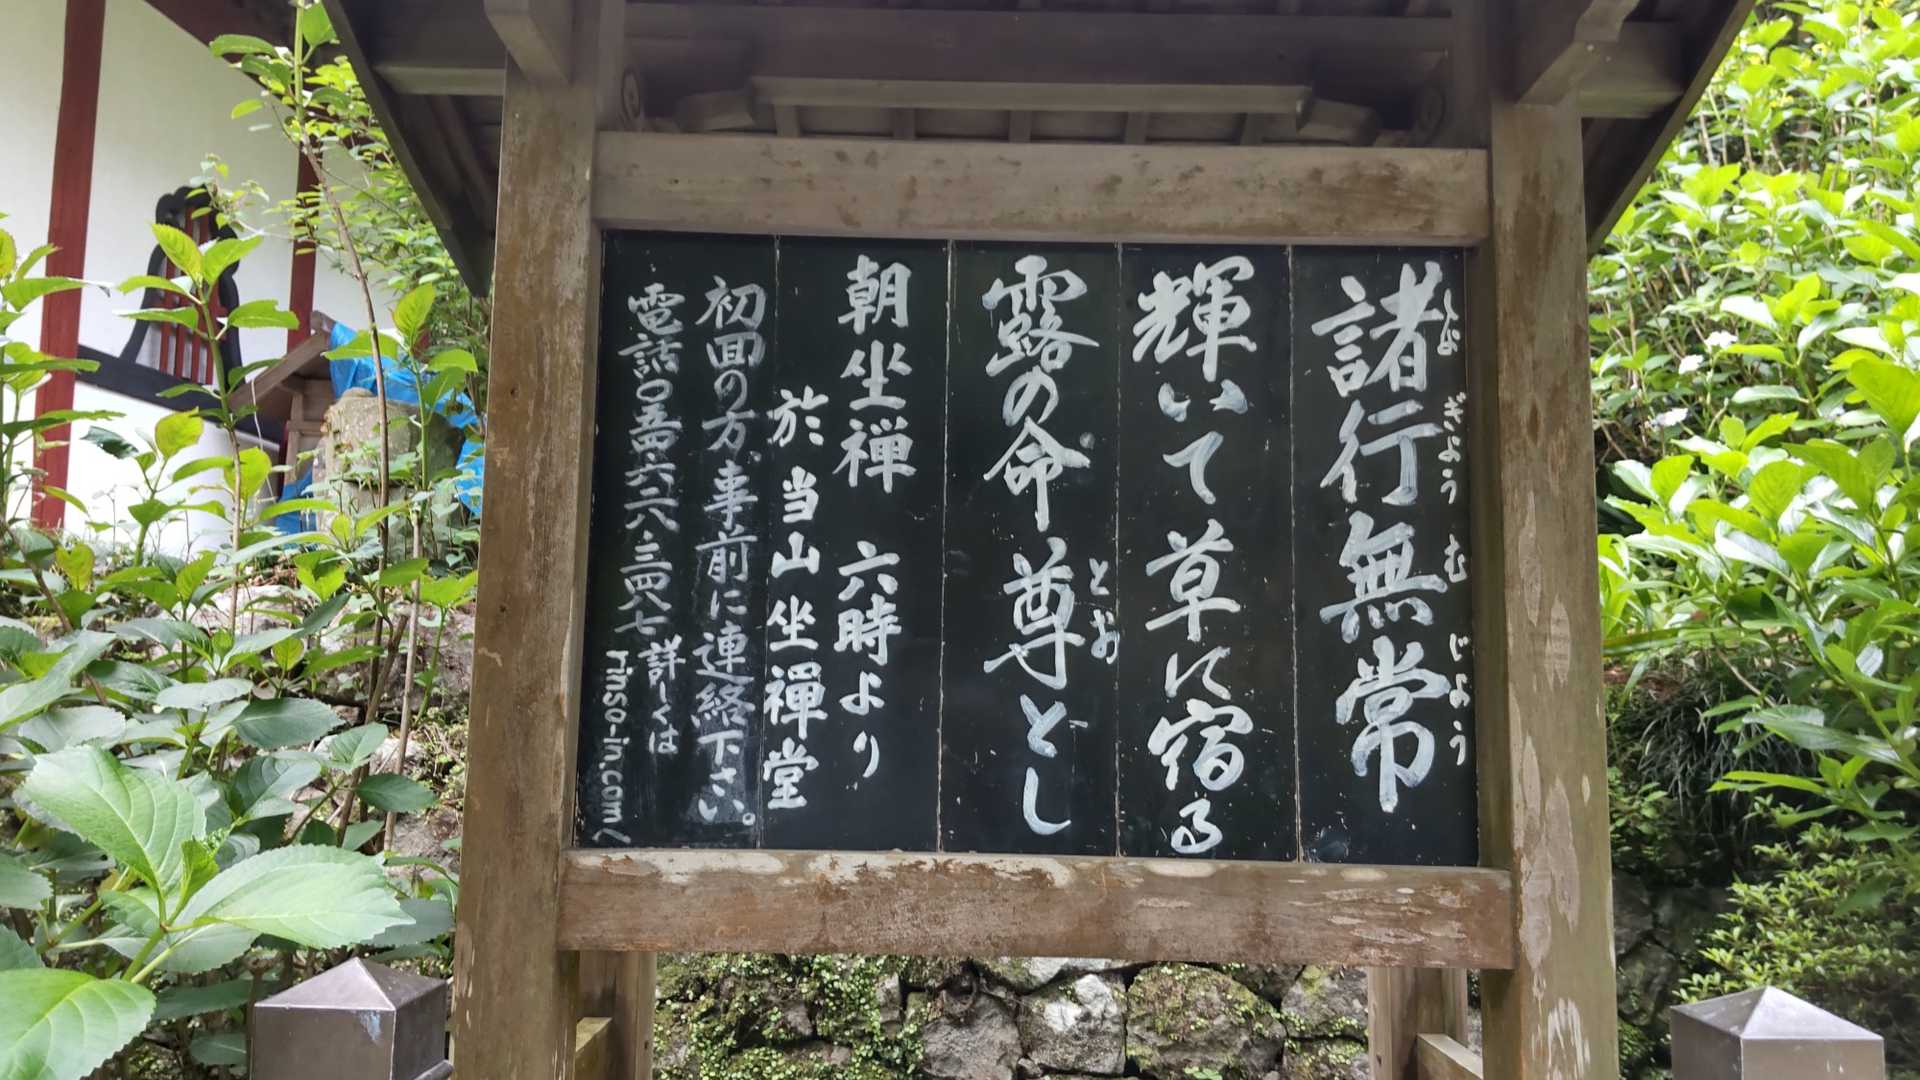 諸行無常
しょ ぎょう む じょう
輝いて草に宿る
露の命尊とし
とお
朝坐禅 六時より
於 当山坐禅堂
初面の方、事前に連絡下さい。
電話〇五四・六二八・三四八七 詳しくは
rinso-in.com